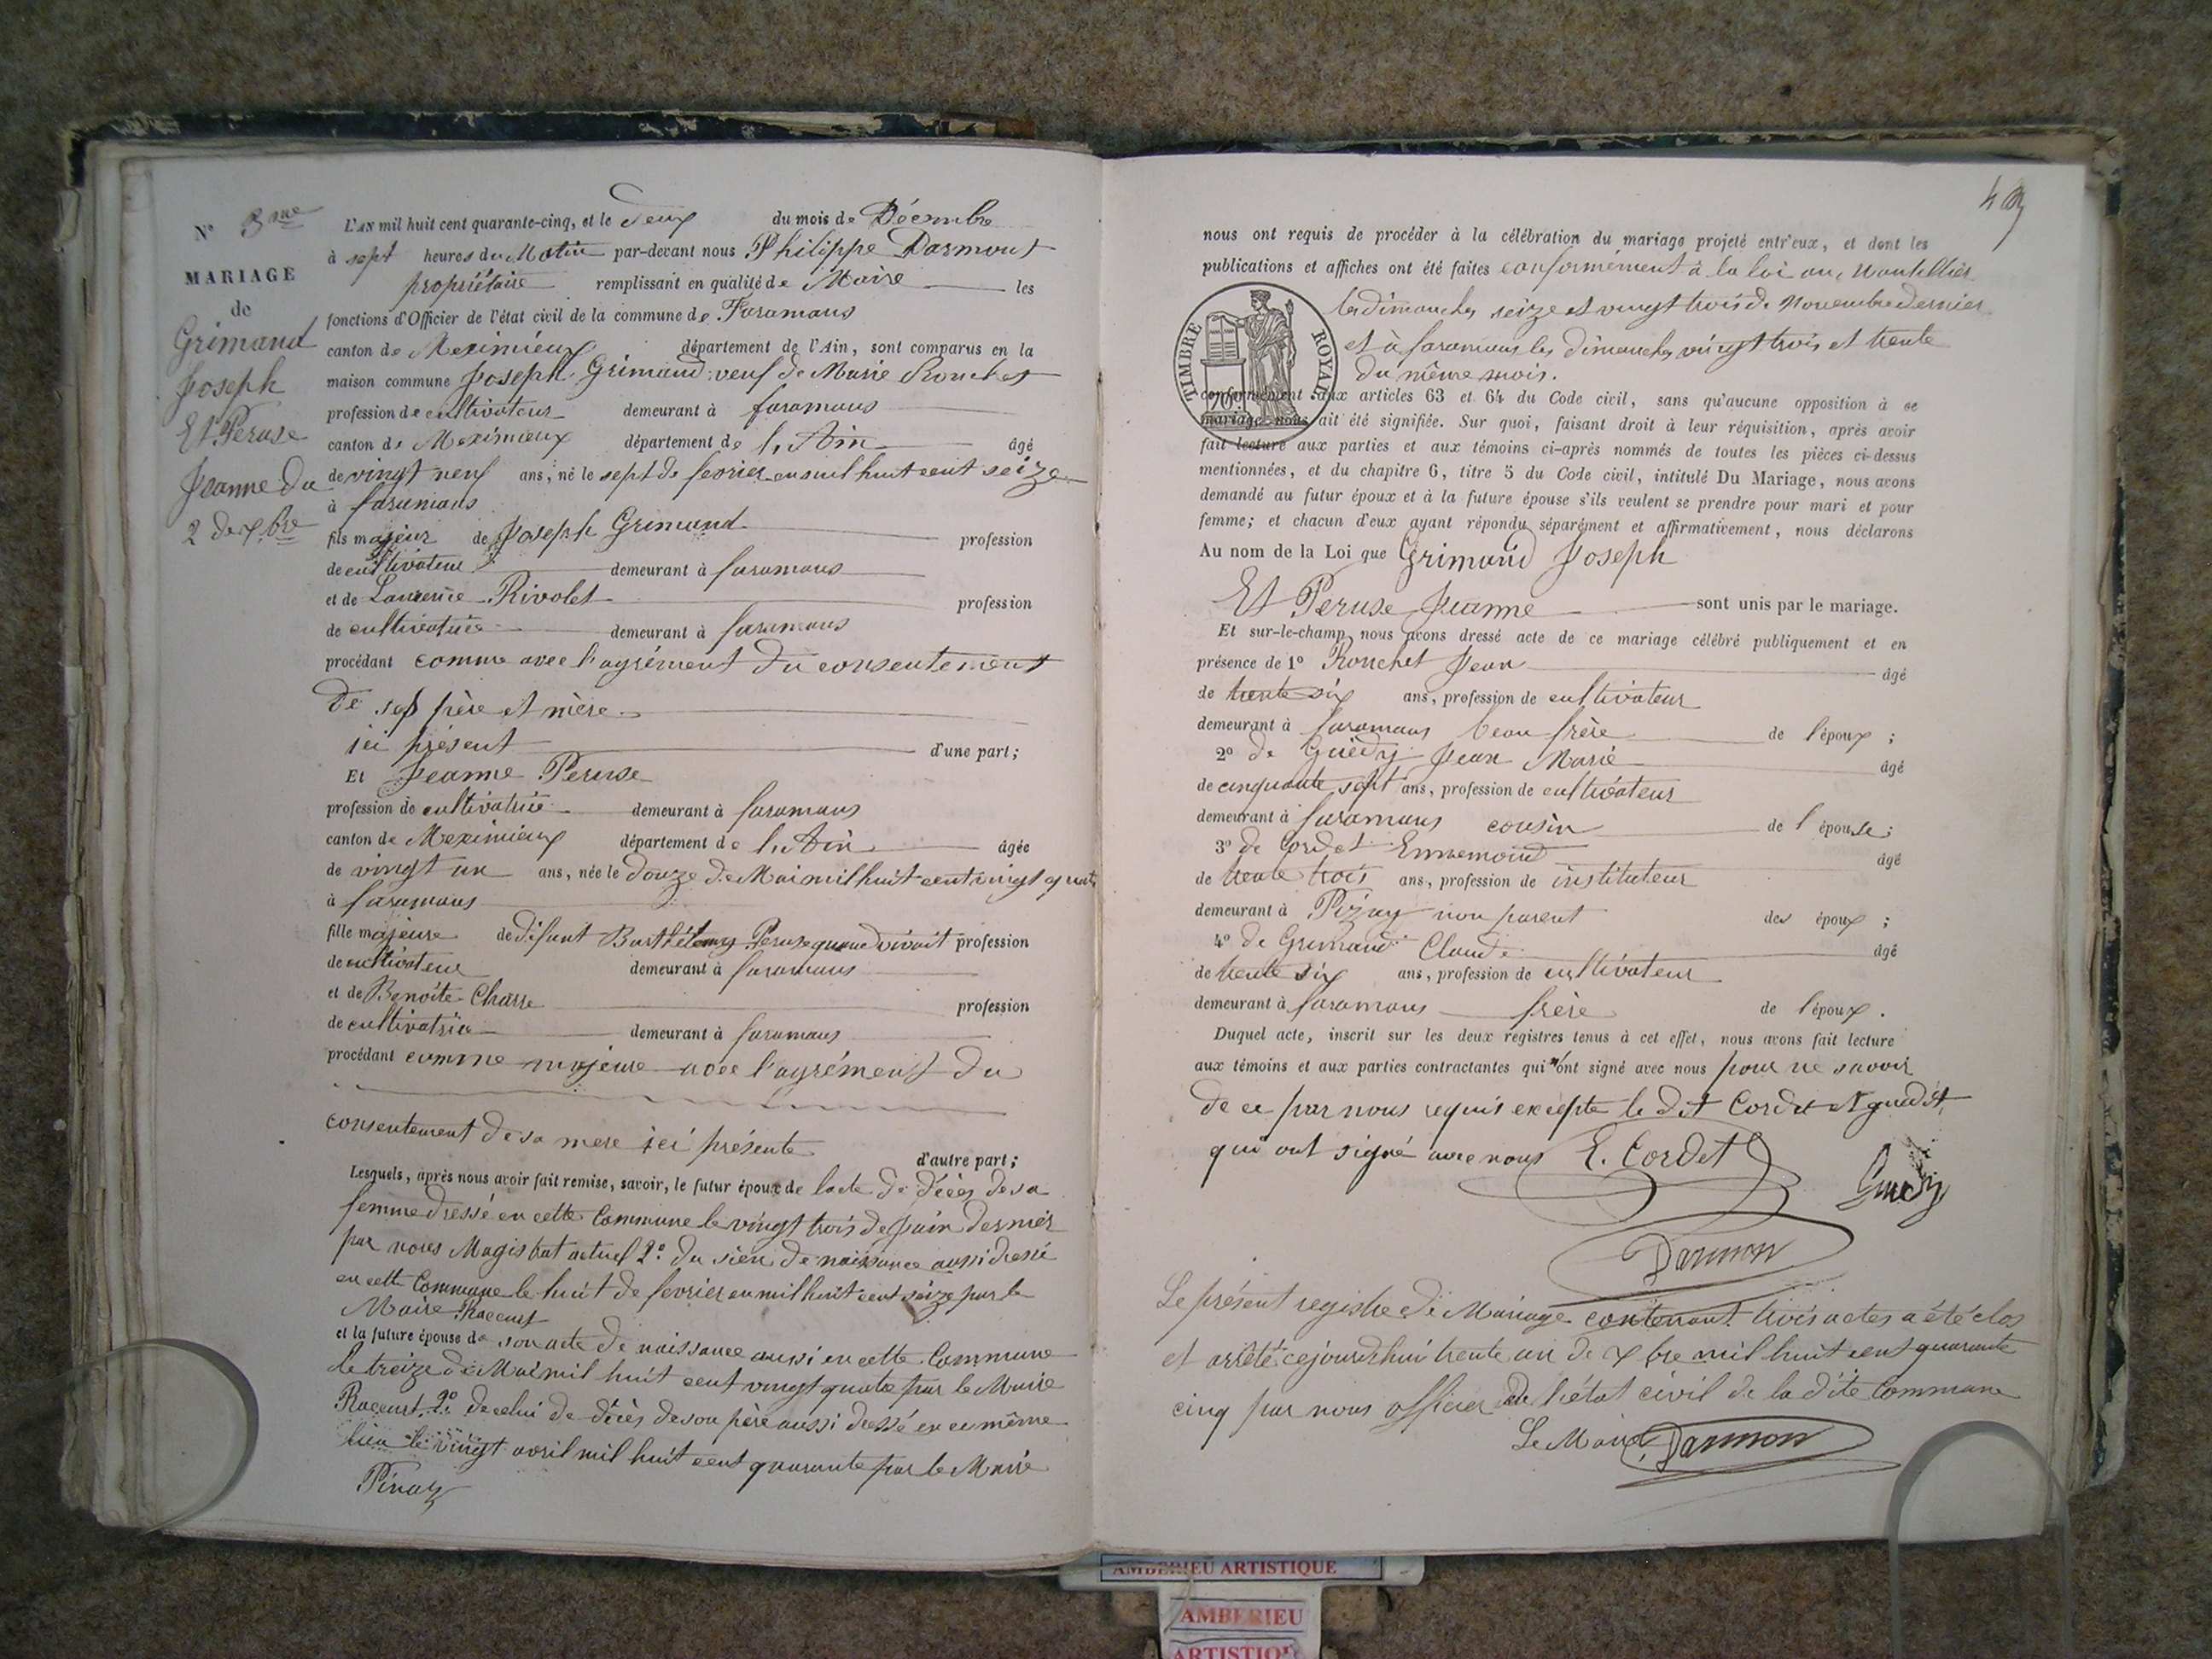 N° 3me
MARIAGE
de
Grimand
Joseph
Et Peruse
Jeanne du
2 de xbre
L'AN mil huit cent quarante-cinq, et le deux du mois de Décembre
à sept heures du Matin par-devant nous Philippe Darmont
propriétaire remplissant en qualité de Maire les
fonctions d'Officier de l'état civil de la commune de Faramans
canton de Meximieux département de l'Ain, sont comparus en la
maison commune Joseph Grimand veuf de Marie Ronchet
profession de cultivateur demeurant à faramans
canton de Meximieux département de l'Ain âgé
de vingt neuf ans, né le sept de fevrier en mil huit cent seize
à faramans
fils majeur de Joseph Grimand profession
de cultivateur demeurant à faramans
et de Laurence Rivolet profession
de cultivatrice demeurant à faramans
procédant comme avec l'agrément du consentement
De ses père et mère
ici présent d'une part;
Et Jeanne Peruse
profession de cultivatrice demeurant à faramans
canton de Meximieux département de l'Ain âgée
de vingt un ans, née le douze de Mai mil huit cent vingt quatre
à faramans
fille majeure de défunt Barthélemy Peruse quand vivait profession
de cultivateur demeurant à faramans
et de Benoite Charre profession
de cultivatrice demeurant à faramans
procédant comme majeure avec l'agrément du
consentement de sa mere ici présente
d'autre part;
Lesquels, après nous avoir fait remise, savoir, le futur époux de lacte de décès de sa
femme dressé en cette Commune le vingt trois de juin dernier
par nous Magistrat actuel 2° du sien de naissance aussi dressé
en cette Commune le huit de fevrier en mil huit cent seize par le
Maire Raccurt
et la future épouse de son acte de naissance aussi en cette Commune
le treize de Mai mil huit cent vingt quatre par le Maire
Raccurt 2° de celui de décès de son père aussi dressé en ce même
lieu le vingt avril mil huit cent quarante par le Maire
Pinay
nous ont requis de procéder à la célébration du mariage projeté entr'eux, et dont les
publications et affiches ont été faites conformément à la loi au Montellier
les dimanches seize et vingt trois de Novembre dernier
et à faramans les dimanches vingt trois et trente
du même mois.
TIMBRE ROYAL
conformément aux articles 63 et 64 du Code civil, sans qu'aucune opposition à ce
mariage nous ait été signifiée. Sur quoi, faisant droit à leur réquisition, après avoir
fait lecture aux parties et aux témoins ci-après nommés de toutes les pièces ci-dessus
mentionnées, et du chapitre 6, titre 5 du Code civil, intitulé Du Mariage, nous avons
demandé au futur époux et à la future épouse s'ils veulent se prendre pour mari et pour
femme; et chacun d'eux ayant répondu séparément et affirmativement, nous déclarons
Au nom de la Loi que Grimand Joseph
Et Peruse Jeanne sont unis par le mariage.
Et sur-le-champ nous avons dressé acte de ce mariage célébré publiquement et en
présence de 1° Ronchet Jean âgé
de trente six ans, profession de cultivateur
demeurant à faramans beau frère de l'époux;
2° de Guedy Jean Marie âgé
de cinquante sept ans, profession de cultivateur
demeurant à faramans cousin de l'épouse;
3° de Cordet Ennemond âgé
de trente trois ans, profession de instituteur
demeurant à Pizay non parent des époux;
4° de Grimand Claude âgé
de trente six ans, profession de cultivateur
demeurant à faramans frère de l'époux.
Duquel acte, inscrit sur les deux registres tenus à cet effet, nous avons fait lecture
aux témoins et aux parties contractantes qui n'ont signé avec nous pour ne savoir
de ce par nous requis excepte le dit Cordet et
qui ont signé avec nous E. Cordet
Guedy
Darmon
Le présent registre de Mariage contenant trois actes a été clos
et arrêté cejourd'hui trente un de xbre mil huit cent quarante
cinq par nous officier de l'état civil de la dite Commune
Le Maire Darmon
AMBERIEU ARTISTIQUE
AMBERIEU
ARTISTIQUE